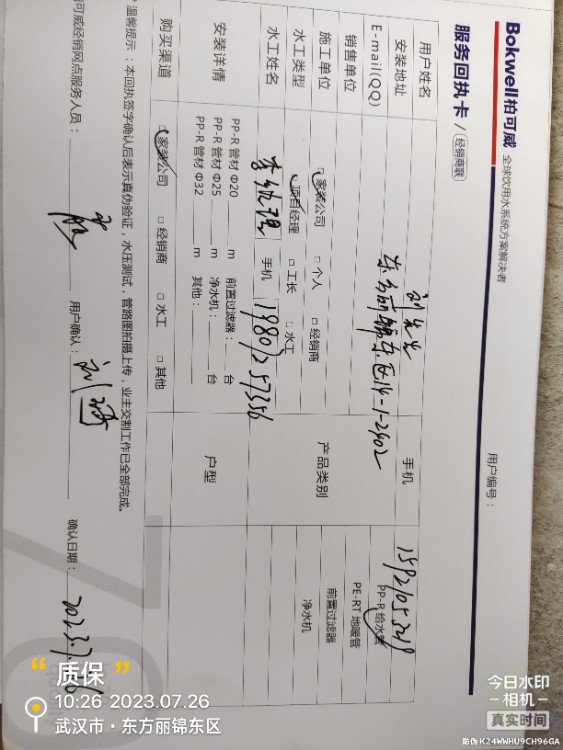 Bokwell柏可威 全球饮用水系统方案解决者
服务回执卡 / 经销商联
用户编号：
用户姓名 刘先生 手机
安装地址 东方丽锦东区14-1-2402
E-mail(QQ)
销售单位 产品类别 PP-R 给水管
PE-RT 地暖管
前置过滤器
净水机
施工单位 □家装公司 □个人 □经销商
水工类型 □项目经理 □工长 □水工
水工姓名 李经理 手机 19801257356
安装详情 PP-R 管材 Φ20 m 前置过滤器： 台 户型
PP-R 管材 Φ25 m 净水机： 台
PP-R 管材 Φ32 m 其他：
购买渠道 □家装公司 □经销商 □水工 □其他
温馨提示：本回执签字确认后表示真伪验证，水压测试，管路图拍摄上传，业主交割工作已全部完成。
可威经销网点服务人员： 用户确认： 确认日期： 2023.7.26
质保
10:26 2023.07.26
武汉市·东方丽锦东区
今日水印
相机
真实时间
防伪 K24WWHU9CH96GA